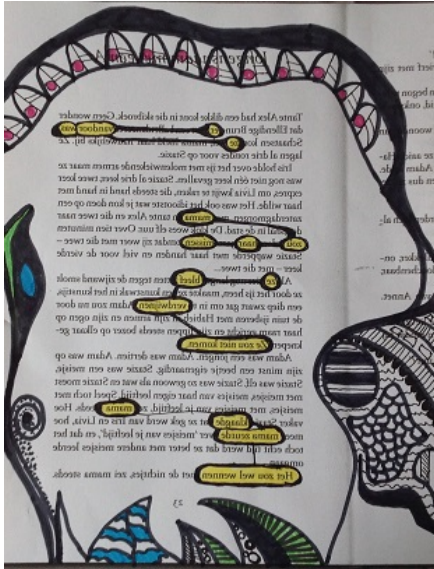 Tante Alex had een dikke kont in die skibroek. Geen wonder
dat Ellendige vandoor was
Schaatsen ze nauwelijks bij. Ze
lagen al drie rondes voor op Stazie.
Iris holde over het ijs met molenwiekende armen maar ze
was nog niet één keer gevallen. Stazie al drie keer, twee keer
expres, om Livia kwijt te raken, die steeds hand in hand met
haar wilde. Het was ook het idiootste wat je kon doen op een
zaterdagmorgen, mama tante Alex en die twee naar
in de stad. De klok wees elf uur. Over tien minuten
zou haar missen zij weer met die twee –
Stazie wapperde met haar handen en viel voor de vierde
keer – met die twee.
ze bleef tegen de zijwand smolt
ze door het ijs heen, maakte ze een kunstwak in het kunstijs,
een diep zwart gat om in te verdwijnen. Adam zou nu door
de tuin sjouwen met in zijn armen en zijn ogen op
haar raam gericht en zijn lippen steeds bozer op elkaar ge-
knepen. Ze zou niet komen.
Adam was een jongen. Adam was dertien. Adam was op
zijn minst een beetje eigenaardig. Stazie was een meisje.
Stazie was elf. Stazie was zo gewoon als wat en Stazie moest
met meisjes, meisjes van haar eigen leeftijd. Speel toch met
meisjes, met meisjes van je leeftijd, zei mama steeds. Hoe
vaker klaagde dat ze gek werd van Iris en Livia, hoe
mama zeurde over 'meisjes van je leeftijd', en dat het
toch echt tijd werd dat ze beter met andere meisjes leerde
omgaan.
Het zou wel wennen met de nichtjes, zei mama steeds.
23